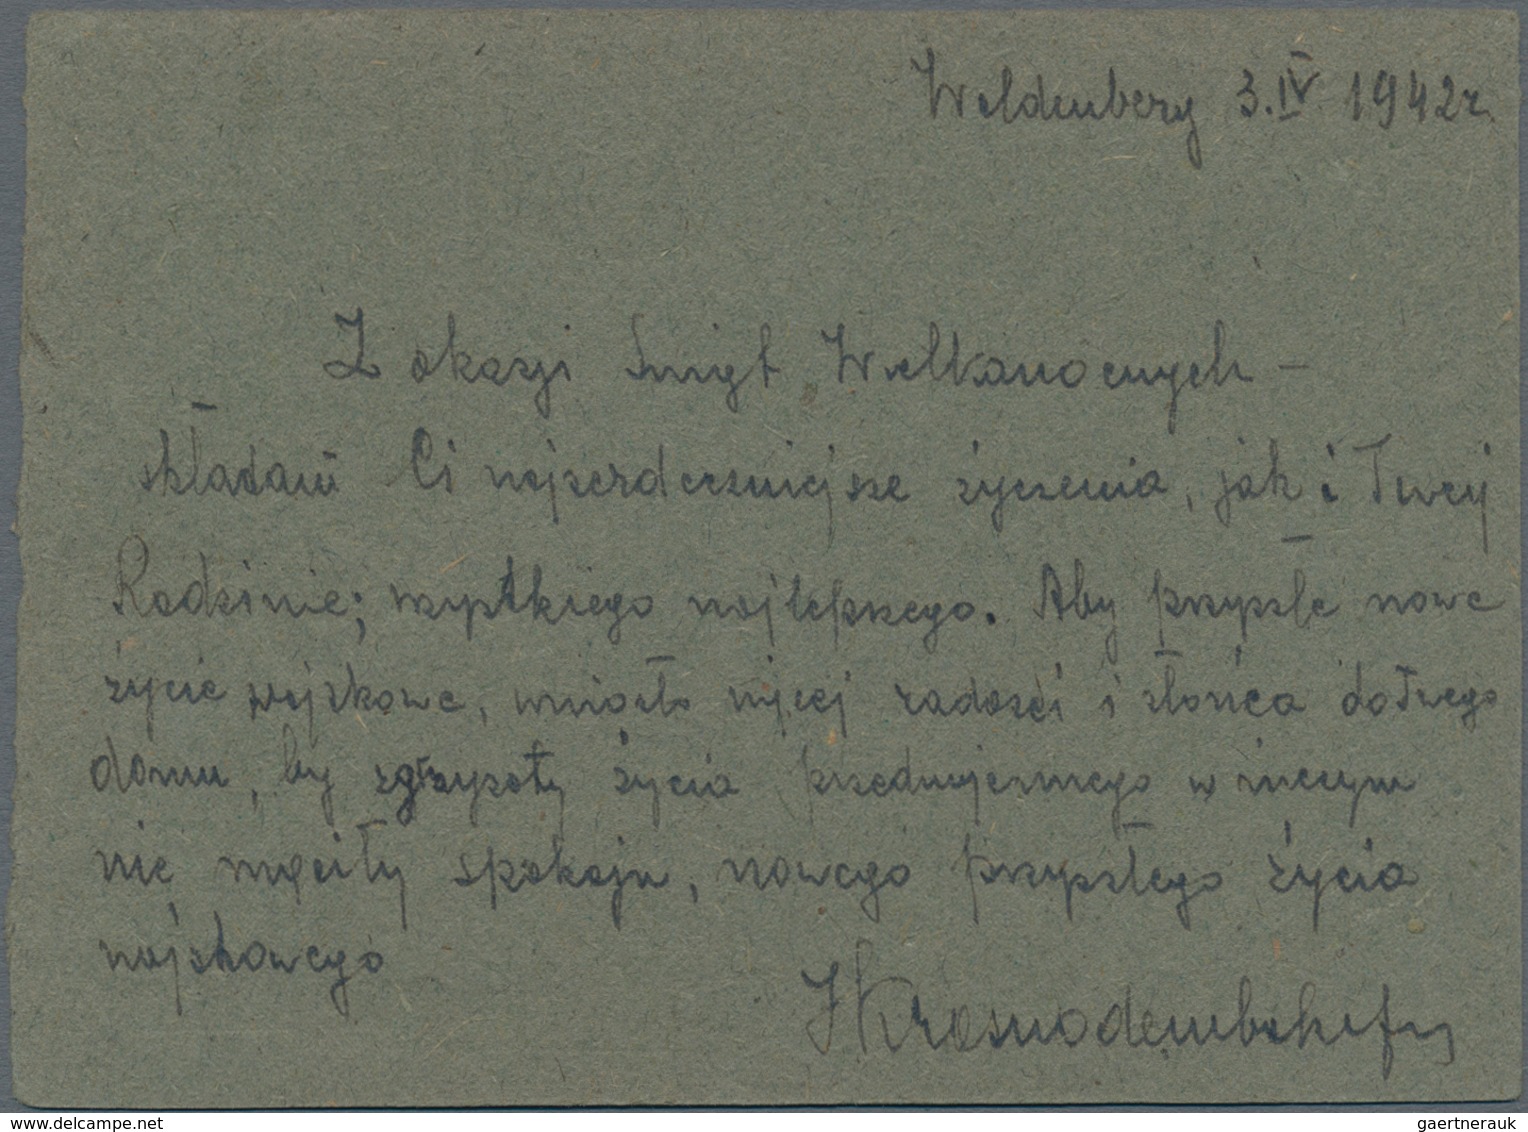 Woldenberg 3.IV 1942r.
Z okazji Świąt Wielkanocnych –
składam Ci najserdeczniejsze życzenia, jak i Twej
Rodzinie; wszystkiego najlepszego. Aby przyszłe nowe
życie wojskowe, wniosło więcej radości i słońca do Twego
domu, by zgrzypoty życia przedwojennego w niczym
nie mąciły spokoju, nowego przyszłego życia
wojskowego
gaertnerauk